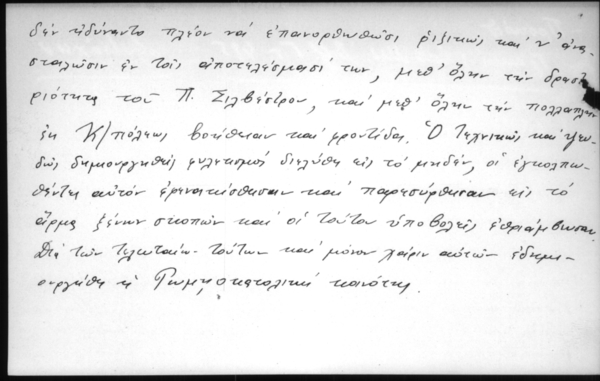 δὲν ἠδύναντο πλέον νὰ ἐπανορθωθῶσι ῥιζικῶς καὶ ν' ἀνα-
σταλῶσιν ἐν τοῖς ἀποτελέσμασί των, μεθ' ὅλην τὴν δραστη-
ριότητα τοῦ Π. Σιλβέστρου, καὶ μεθ' ὅλην τὴν πολλαπλῆν
ἐκ Κ/πόλεως βοήθειαν καὶ φροντίδα. Ὁ τεχνικῶς καὶ ψευ-
δῶς δημιουργηθεὶς φυλετισμὸς διελύθη εἰς τὸ μηδέν, οἱ ἐγκολπω-
θέντες αὐτὸν ἐφενακίσθησαν καὶ παρεσύρθησαν εἰς τὸ
ἅρμα ξένων σκοπῶν καὶ οἱ τούτου ὑποβολεῖς ἐθριάμβευσαν.
Διὰ τῶν τελευταίων τούτων καὶ μόνον χάριν αὐτῶν ἐδημι-
ουργήθη ἡ Ρωμηοκαθολικὴ κοινότης.